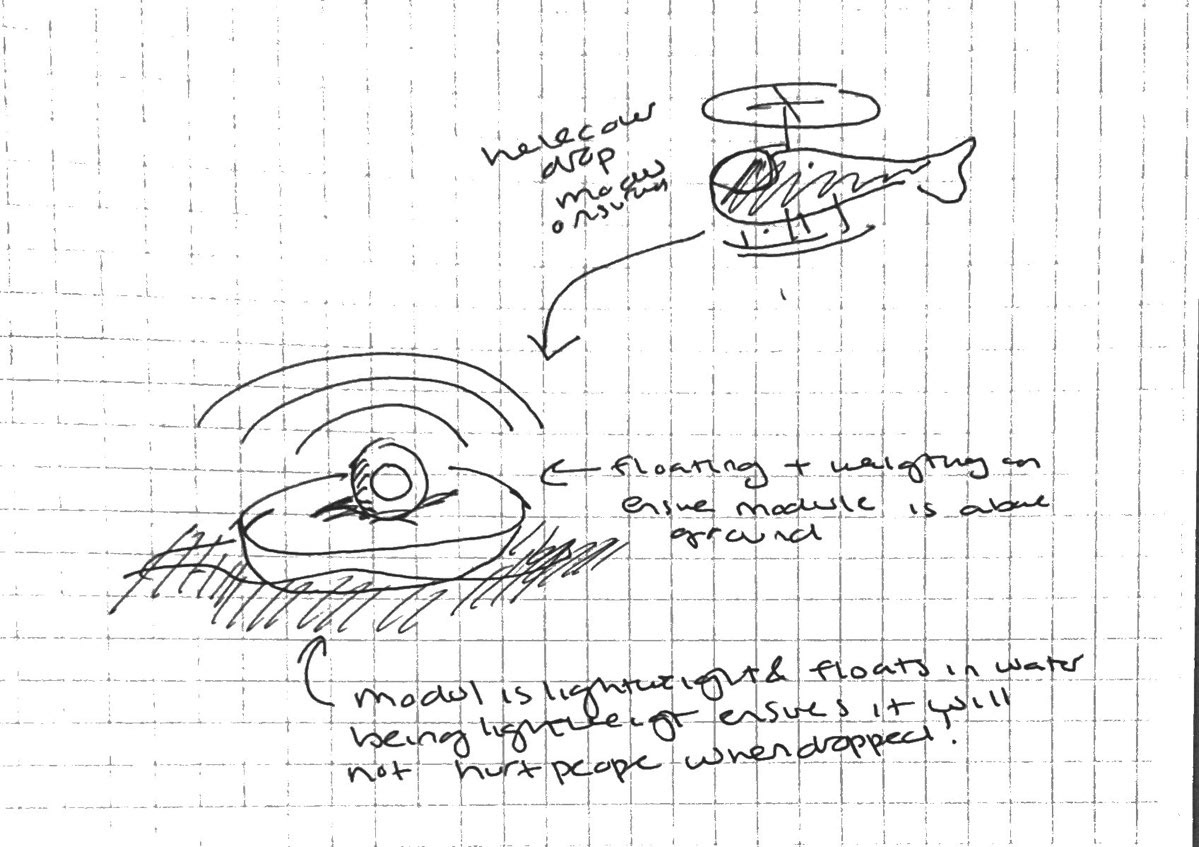 drop
floating + weigting
ensue module is above
ground
modul is lightweight & floats in water
being lightweigt ensures it will
not hurt peope when dropped!